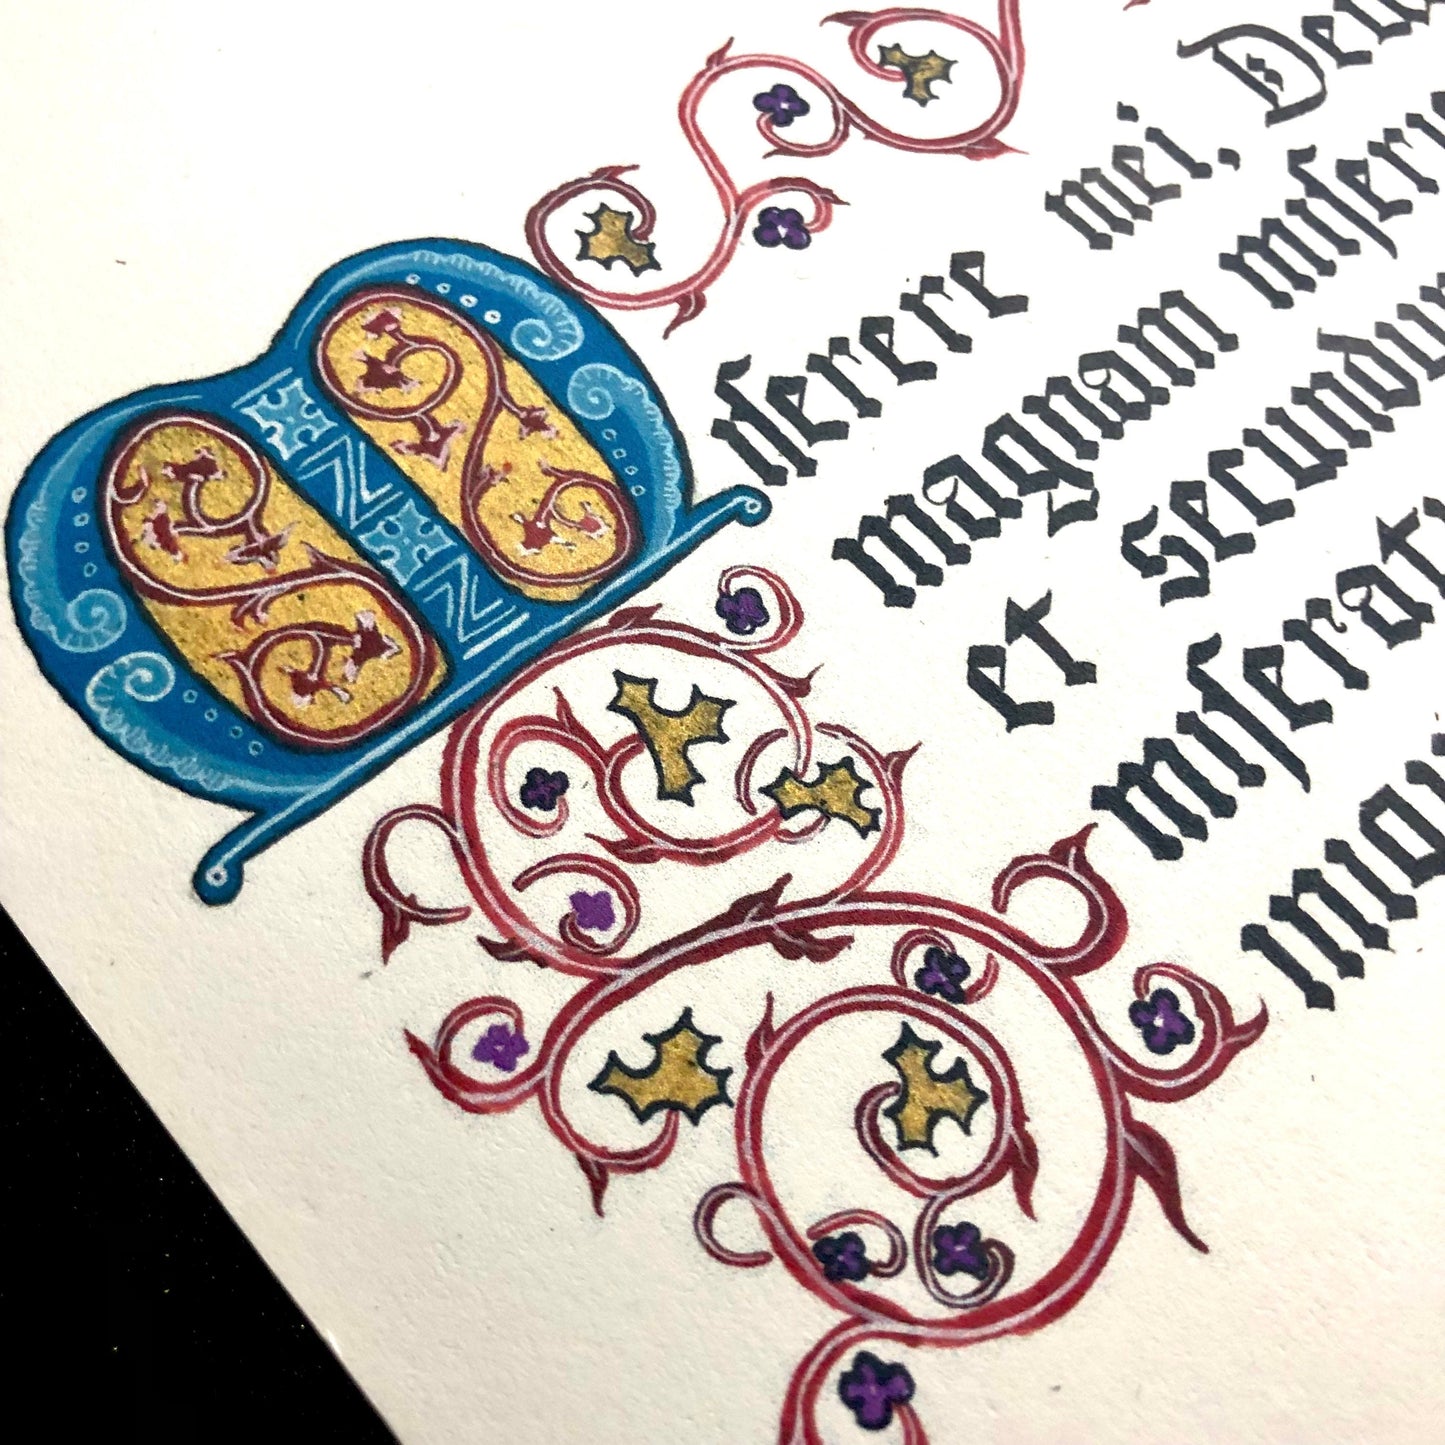 Miſerere mei, Deu
magnam miſeri
et secundu
miſerat